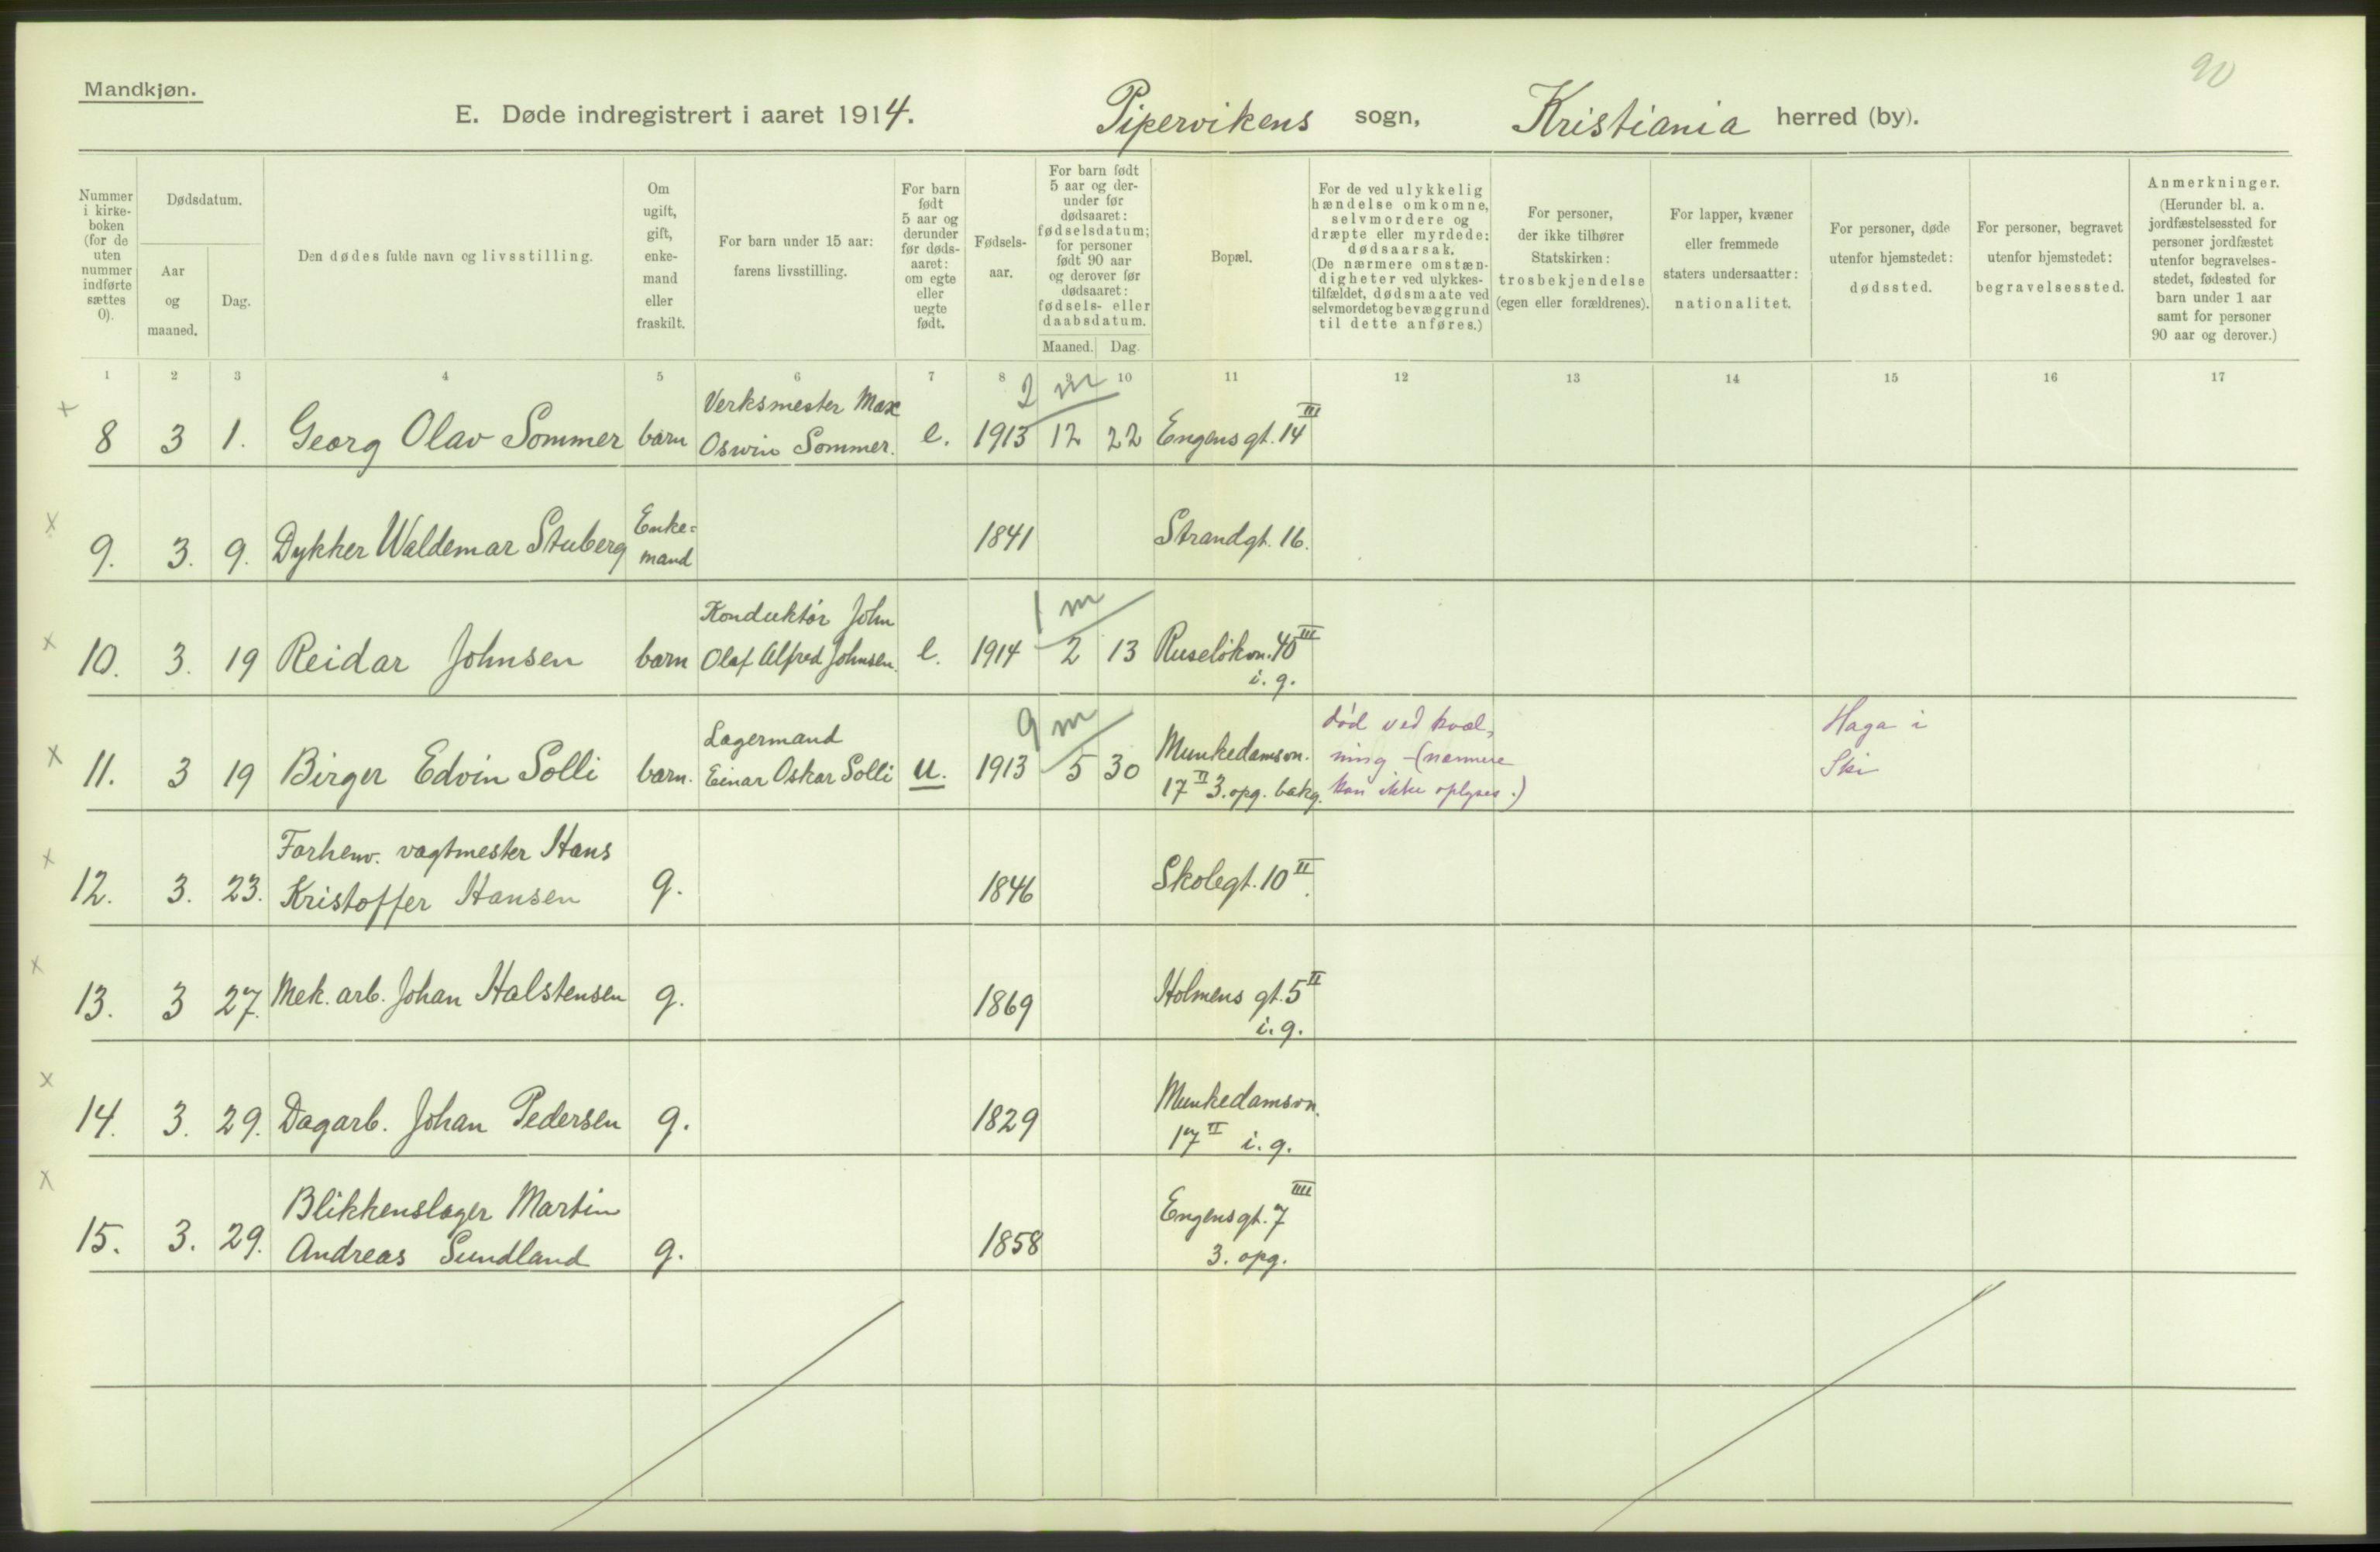 90
Mandkjøn.
E. Døde indregistrert i aaret 1914. Pipervikens sogn, Kristiania herred (by).
Nummer i kirke- boken (for de uten nummer indførte sættes 0).
Dødsdatum.
Aar og maaned.
Dag.
Den dødes fulde navn og livsstilling.
Om ugift, gift, enke- mand eller fraskilt.
For barn under 15 aar: farens livsstilling.
For barn født 5 aar og derunder før døds- aaret: om egte eller uegte født.
Fødsels- aar.
For barn født 5 aar og der- under før dødsaaret: fødselsdatum; for personer født 90 aar og derover før dødsaaret: fødsels- eller daabsdatum.
Maaned. Dag.
Bopæl.
For de ved ulykkelig hændelse omkomne, selvmordere og dræpte eller myrdede: dødsaarsak. (De nærmere omstæn- digheter ved ulykkes- tilfældet, dødsmaate ved selvmordet og bevæggrund til dette anføres.)
For personer, der ikke tilhører Statskirken: trosbekjendelse (egen eller forældrenes).
For lapper, kvæner eller fremmede staters undersaatter: nationalitet.
For personer, døde utenfor hjemstedet: dødssted.
For personer, begravet utenfor hjemstedet: begravelsessted.
Anmerkninger. (Herunder bl. a. jordfæstelsessted for personer jordfæstet utenfor begravelses- stedet, fødested for barn under 1 aar samt for personer 90 aar og derover.)
1 2 3 4 5 6 7 8 9 10 11 12 13 14 15 16 17
2 m
x 8 3 1. Georg Olav Sommer barn Verksmester Max Oswin Sommer. e. 1913 12 22 Engensgt. 14 III
x 9. 3. 9. Dykker Waldemar Stuberg Enke= mand 1841 Strandgt. 16.
1 m
x 10. 3. 19 Reidar Johnsen barn Konduktør John Olaf Alfred Johnsen. e. 1914 2 13 Ruseløkvn. 40 III i. g.
9 m
x 11. 3 19 Birger Edvin Solli barn. Lagermand Einar Oskar Solli u. 1913 5 30 Munkedamsvn. 17 II 3. opg. bakg. død ved kvæl, ning - (nærmere kan ikke oplyses.) Haga i Ski
x 12. 3. 23. Forhenv. vagtmester Hans Kristoffer Hansen g. 1846 Skolegt. 10 II.
x 13. 3 27. Mek. arb. Johan Halstensen g. 1869 Holmens gt. 5 II i. g.
x 14. 3. 29. Dagarb. Johan Pedersen g. 1829 Munkedamsvn. 17 II i. g.
x 15. 3. 29. Blikkenslager Martin Andreas Sundland g. 1858 Engensgt. 7 III 3. opg.